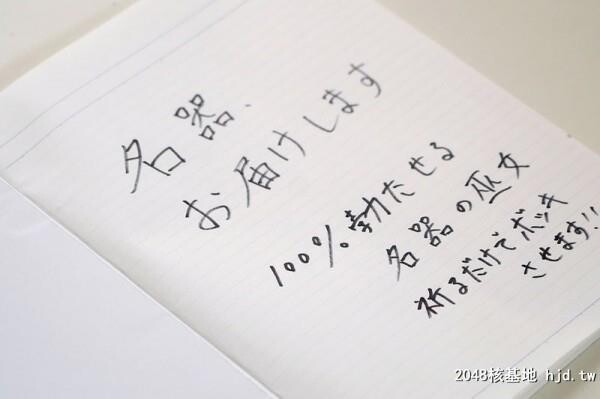 名器、
お届けします
100%勃たせる
名器の巫女
祈るだけでボッキ
させます!!
2048核基地 hjd.tw